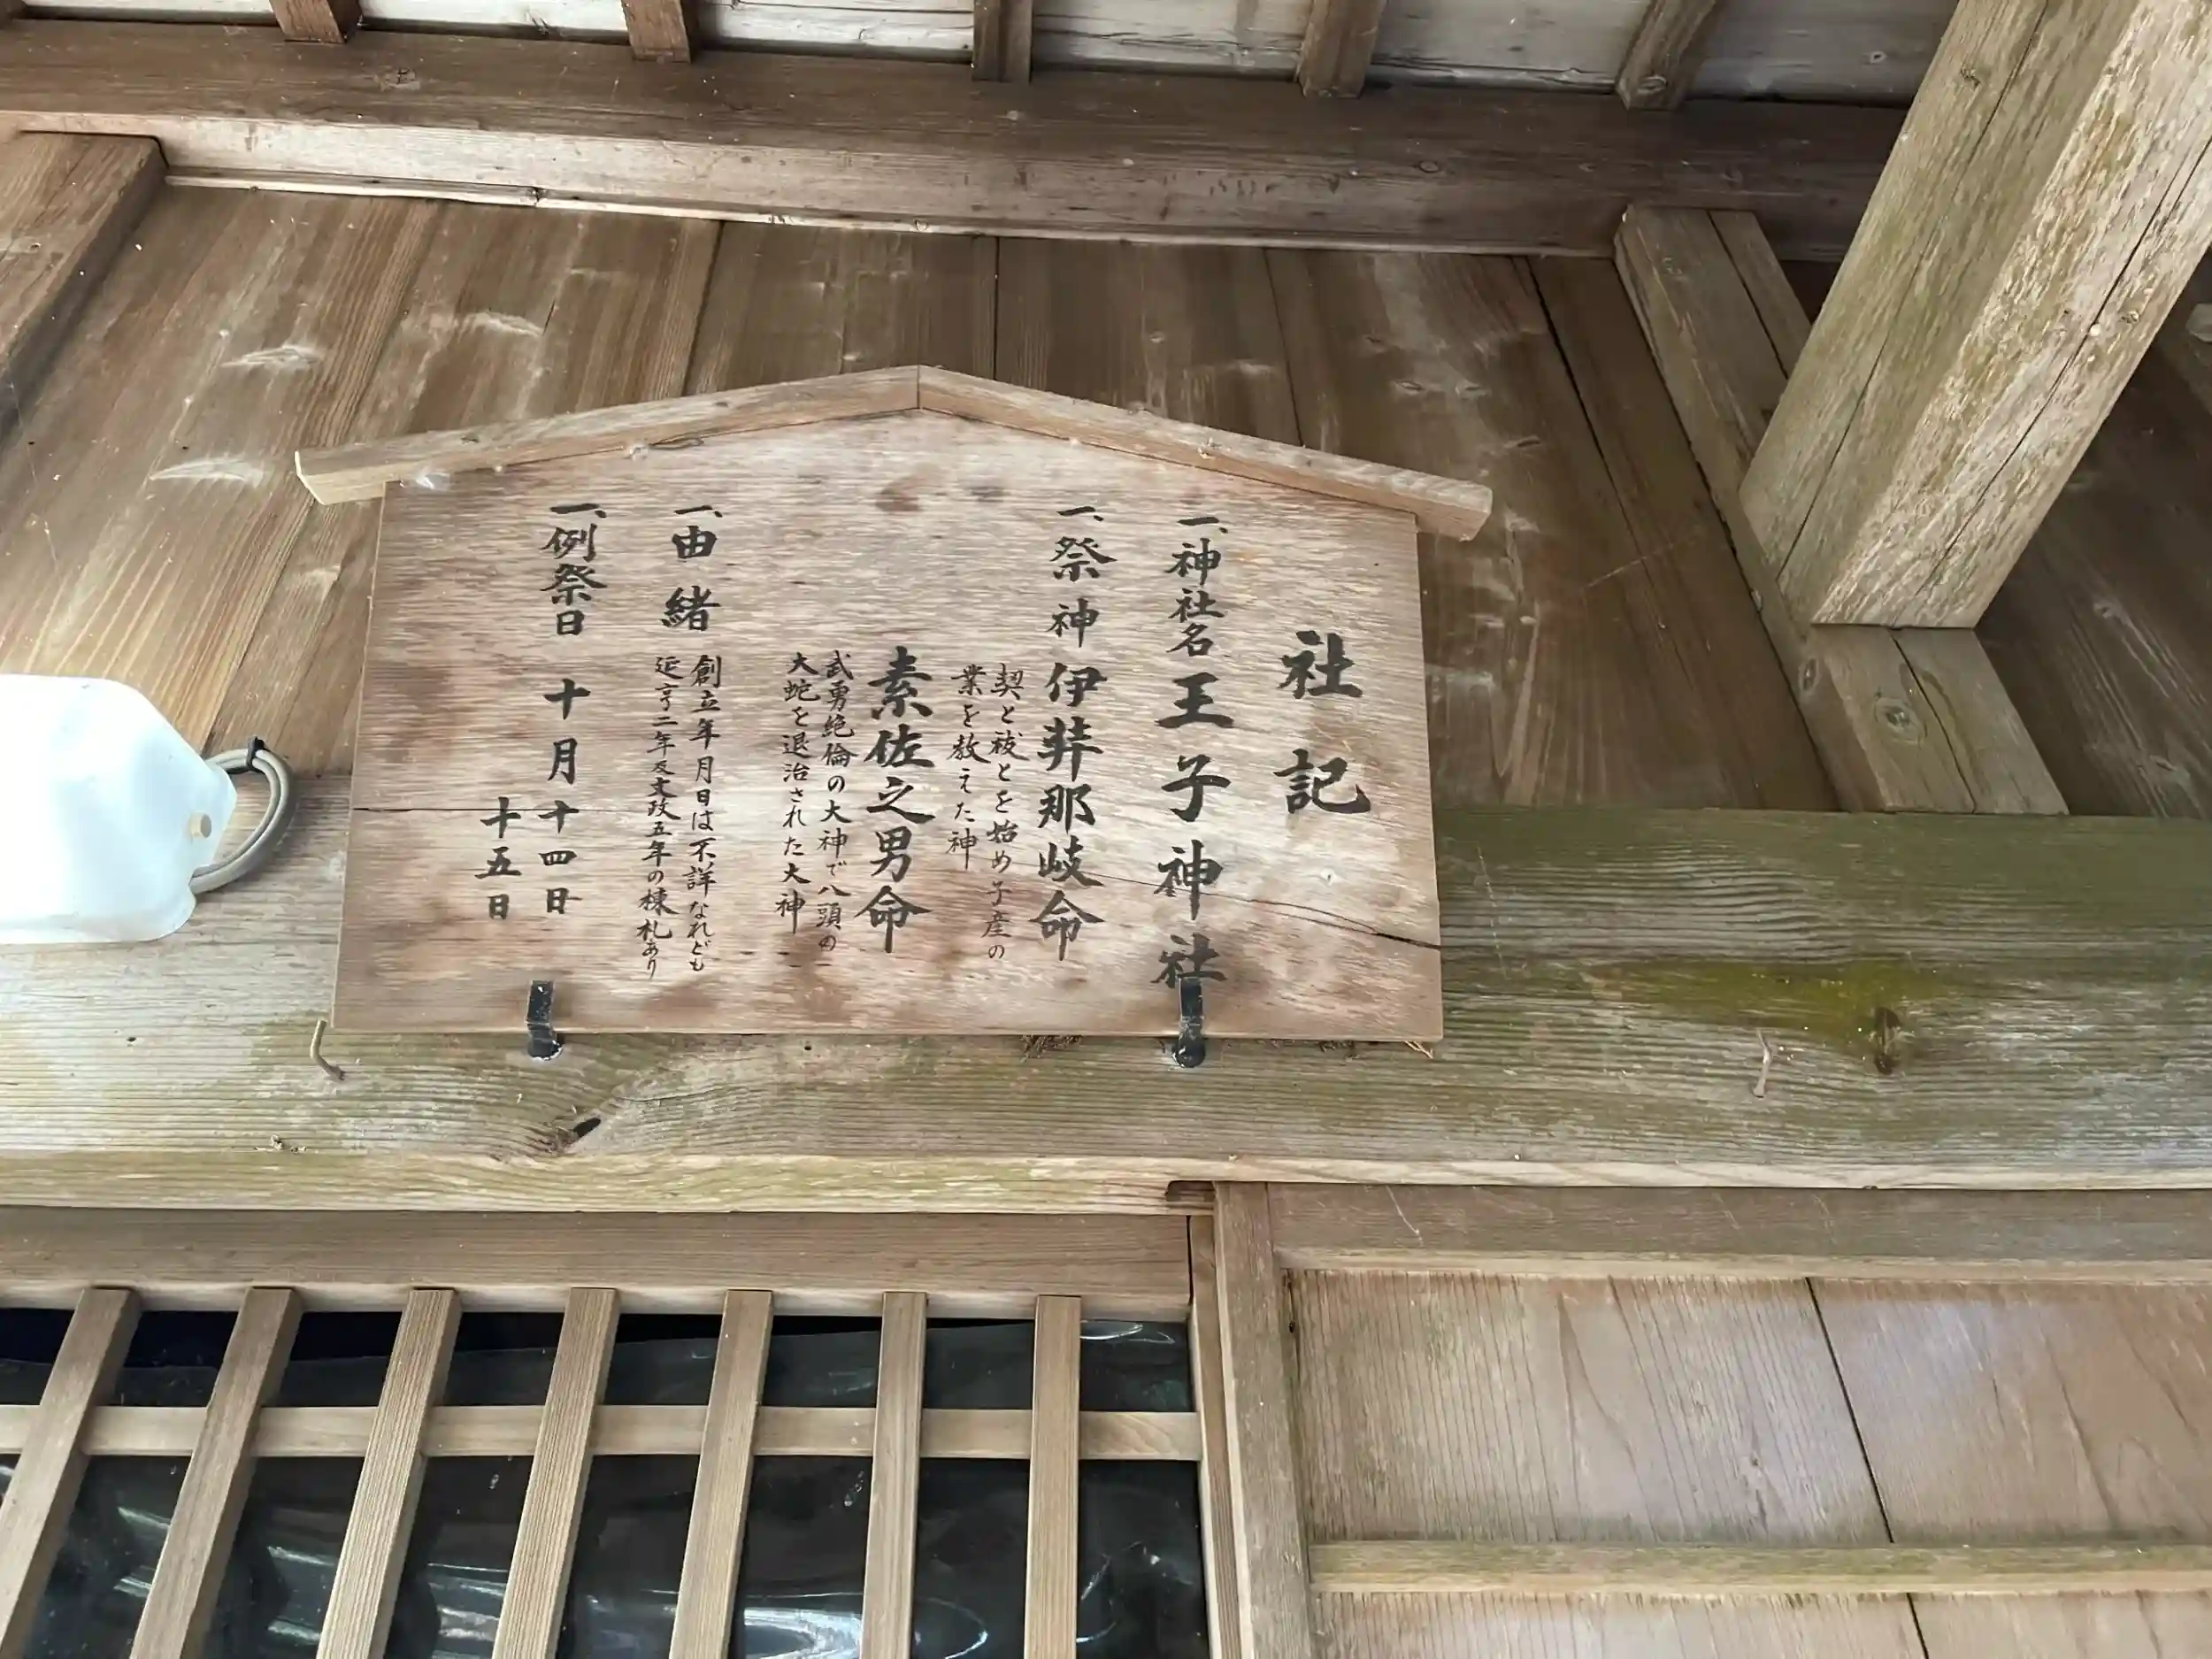 社記
一、神社名 王子神社
一、祭神 伊弉那岐命
契と祓とを始め子産の
業を教えた神
素佐之男命
武勇絶倫の大神で八頭の
大蛇を退治された大神
一、由緒 創立年月日は不詳なれども
延亨二年及文政五年の棟札あり
一、例祭日 十月十四日
十五日